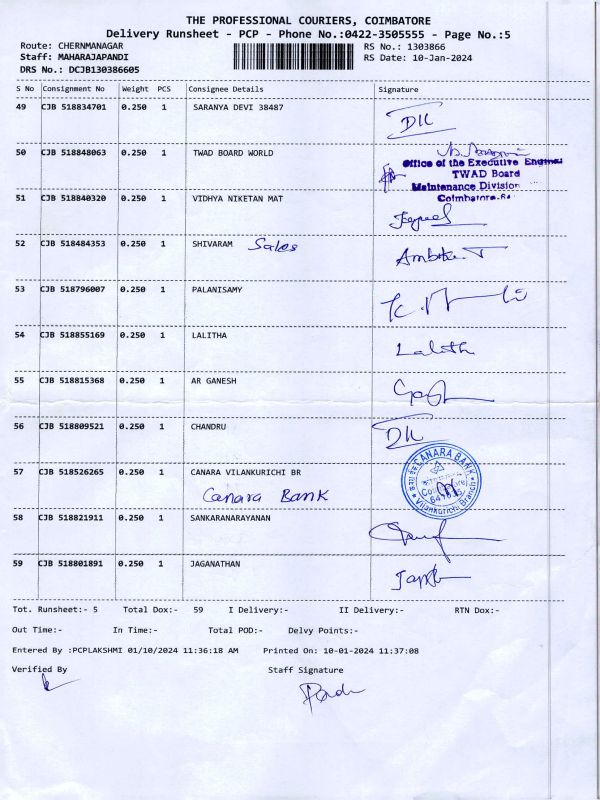 THE PROFESSIONAL COURIERS, COIMBATORE
Delivery Runsheet - PCP - Phone No.:0422-3505555 - Page No.:5
Route: CHERNMANAGAR RS No.: 1303866
Staff: MAHARAJAPANDI RS Date: 10-Jan-2024
DRS No.: DCJB130386605
S No Consignment No Weight PCS Consignee Details Signature
49 CJB 518834701 0.250 1 SARANYA DEVI 38487
50 CJB 518848063 0.250 1 TWAD BOARD WORLD
Office of the Executive Engineer
TWAD Board
Maintenance Division
Coimbatore
51 CJB 518840320 0.250 1 VIDHYA NIKETAN MAT
52 CJB 518484353 0.250 1 SHIVARAM Sales
53 CJB 518796007 0.250 1 PALANISAMY
54 CJB 518855169 0.250 1 LALITHA
Lalitha
55 CJB 518815368 0.250 1 AR GANESH
56 CJB 518809521 0.250 1 CHANDRU
57 CJB 518526265 0.250 1 CANARA VILANKURICHI BR
Canara Bank
CANARA BANK
Vilankurichi Branch
58 CJB 518821911 0.250 1 SANKARANARAYANAN
59 CJB 518801891 0.250 1 JAGANATHAN
Tot. Runsheet:- 5 Total Dox:- 59 I Delivery:- II Delivery:- RTN Dox:-
Out Time:- In Time:- Total POD:- Delvy Points:-
Entered By :PCPLAKSHMI 01/10/2024 11:36:18 AM Printed On: 10-01-2024 11:37:08
Verified By Staff Signature